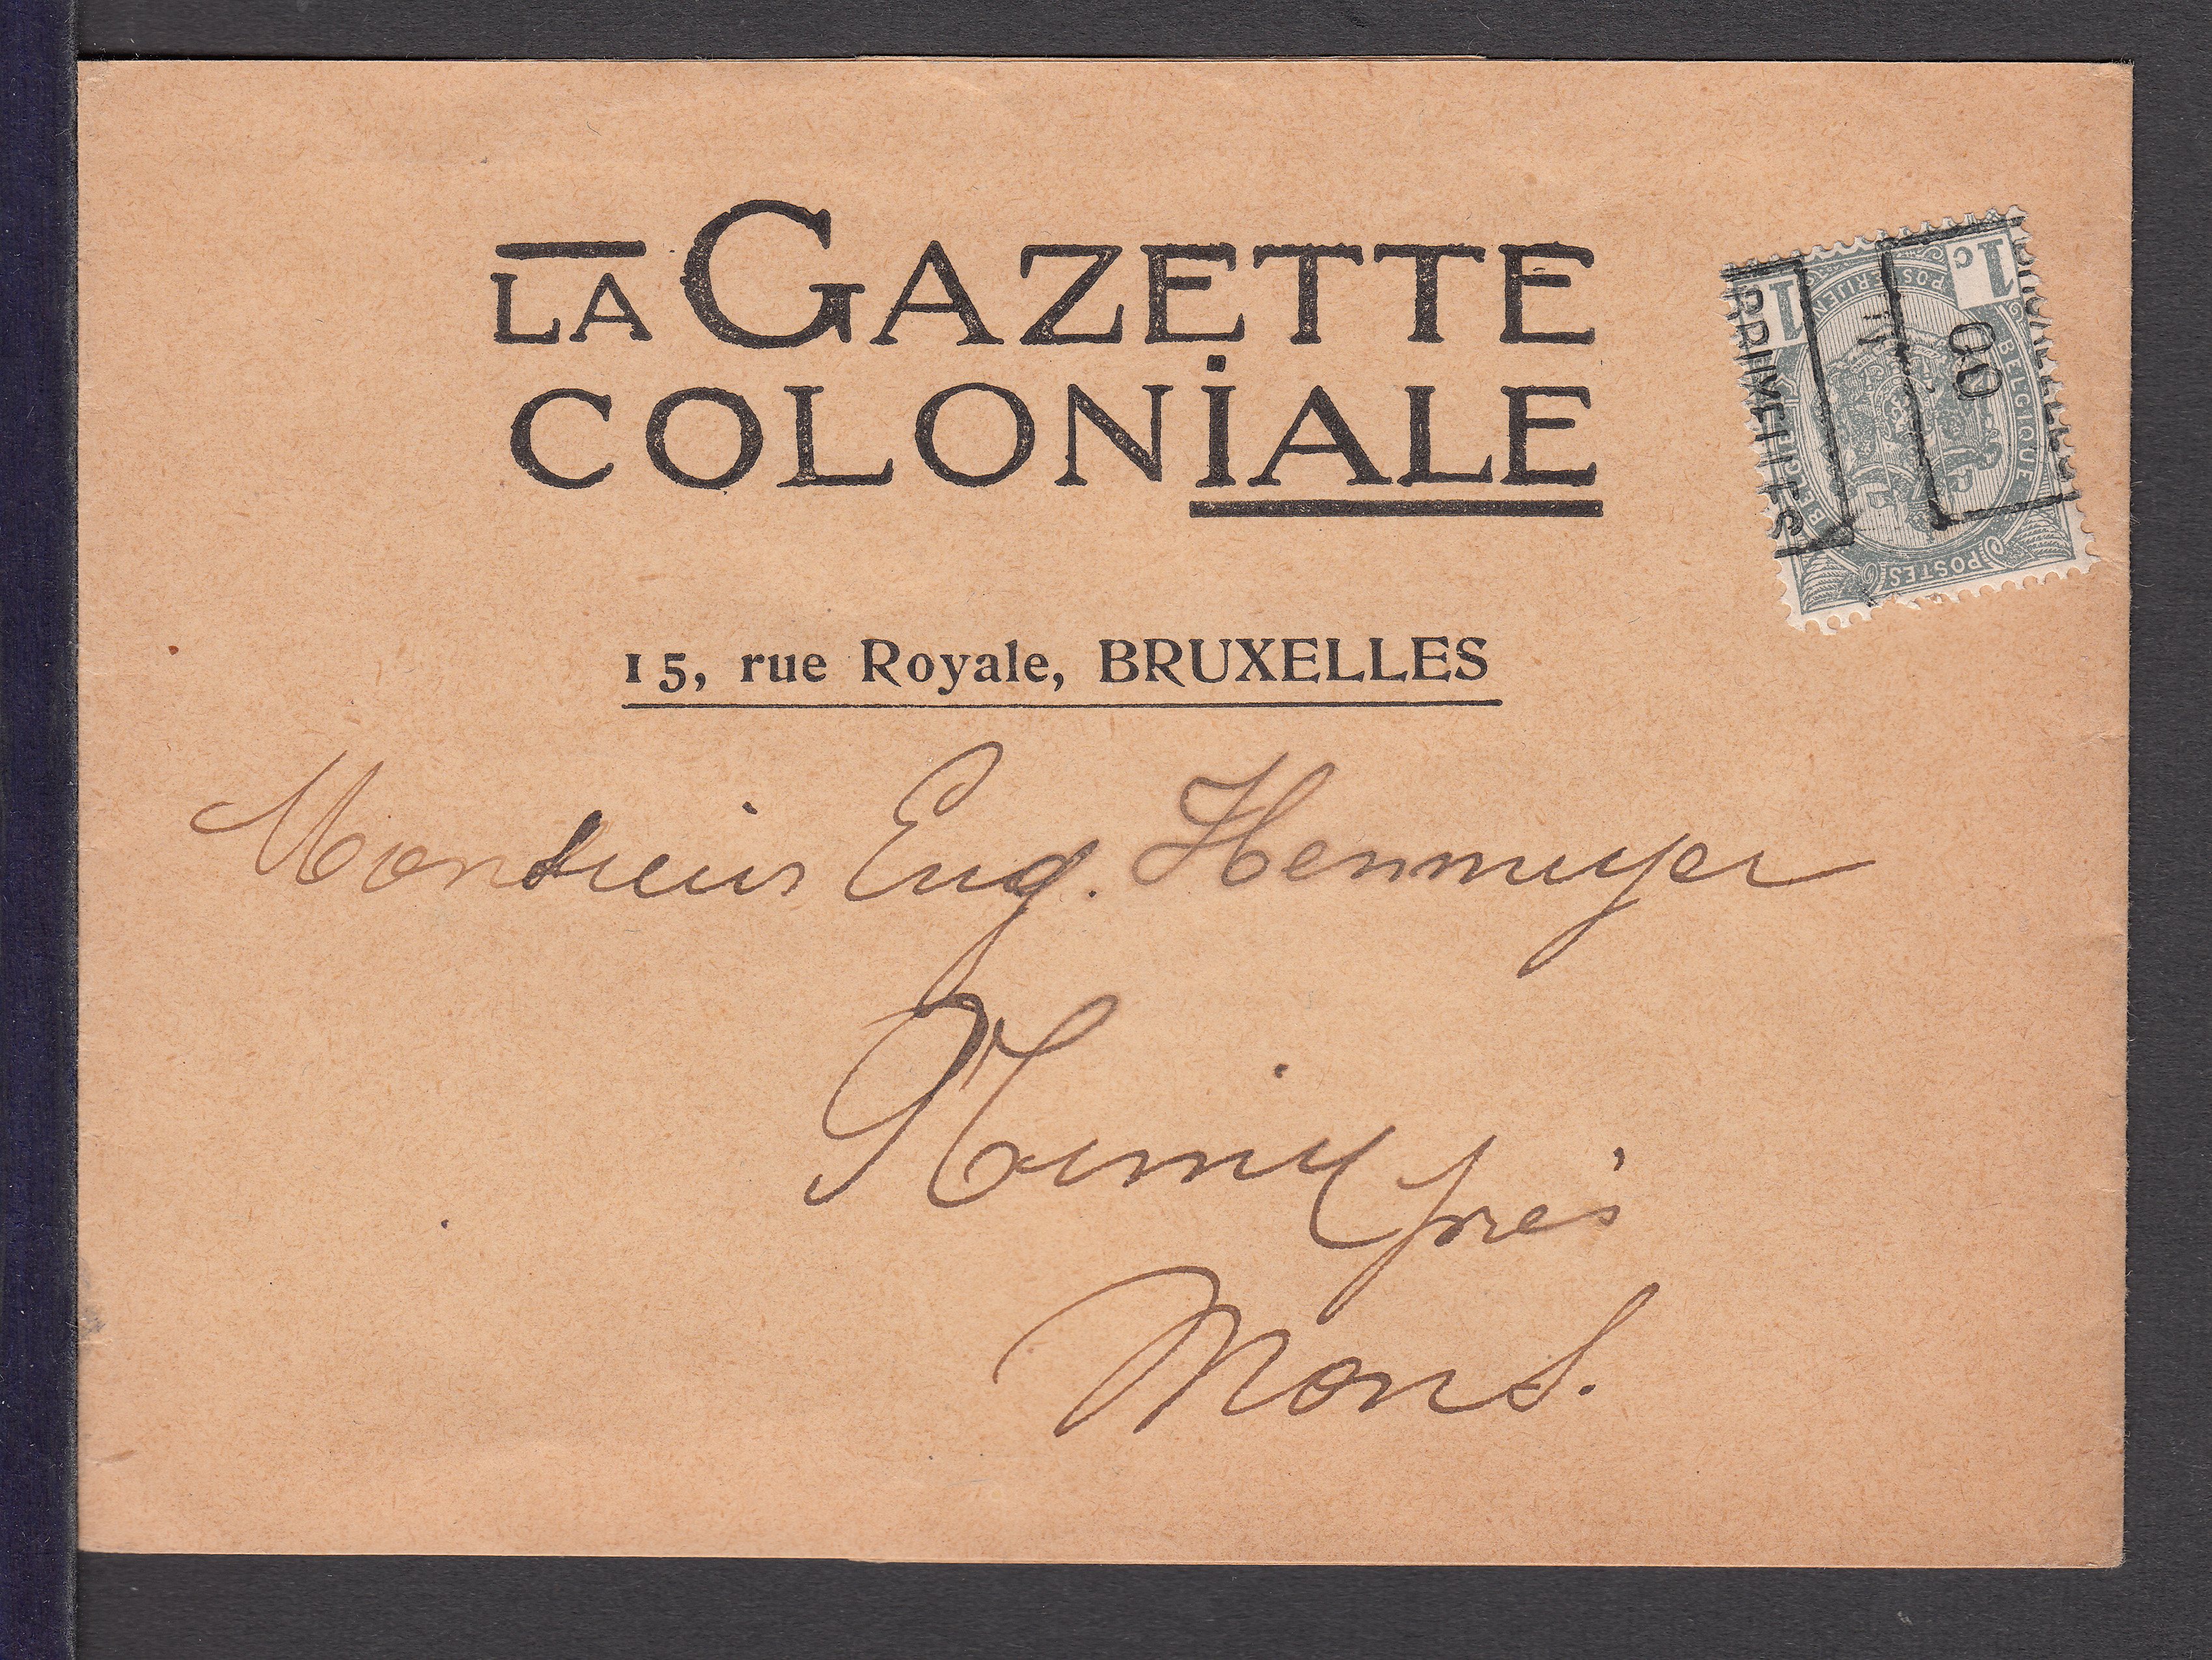 LA GAZETTE
COLONiALE
15, rue Royale, BRUXELLES
Monsieur Eug. Henmuyer
près
Mons.
1c
1
BELGIQUE
POSTES
00